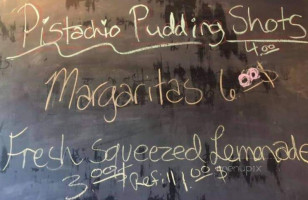 Pistachio Pudding Shots
4.00
Margaritas 6.00$
Fresh Squeezed Lemonade
3.00$ Refill 1.00$